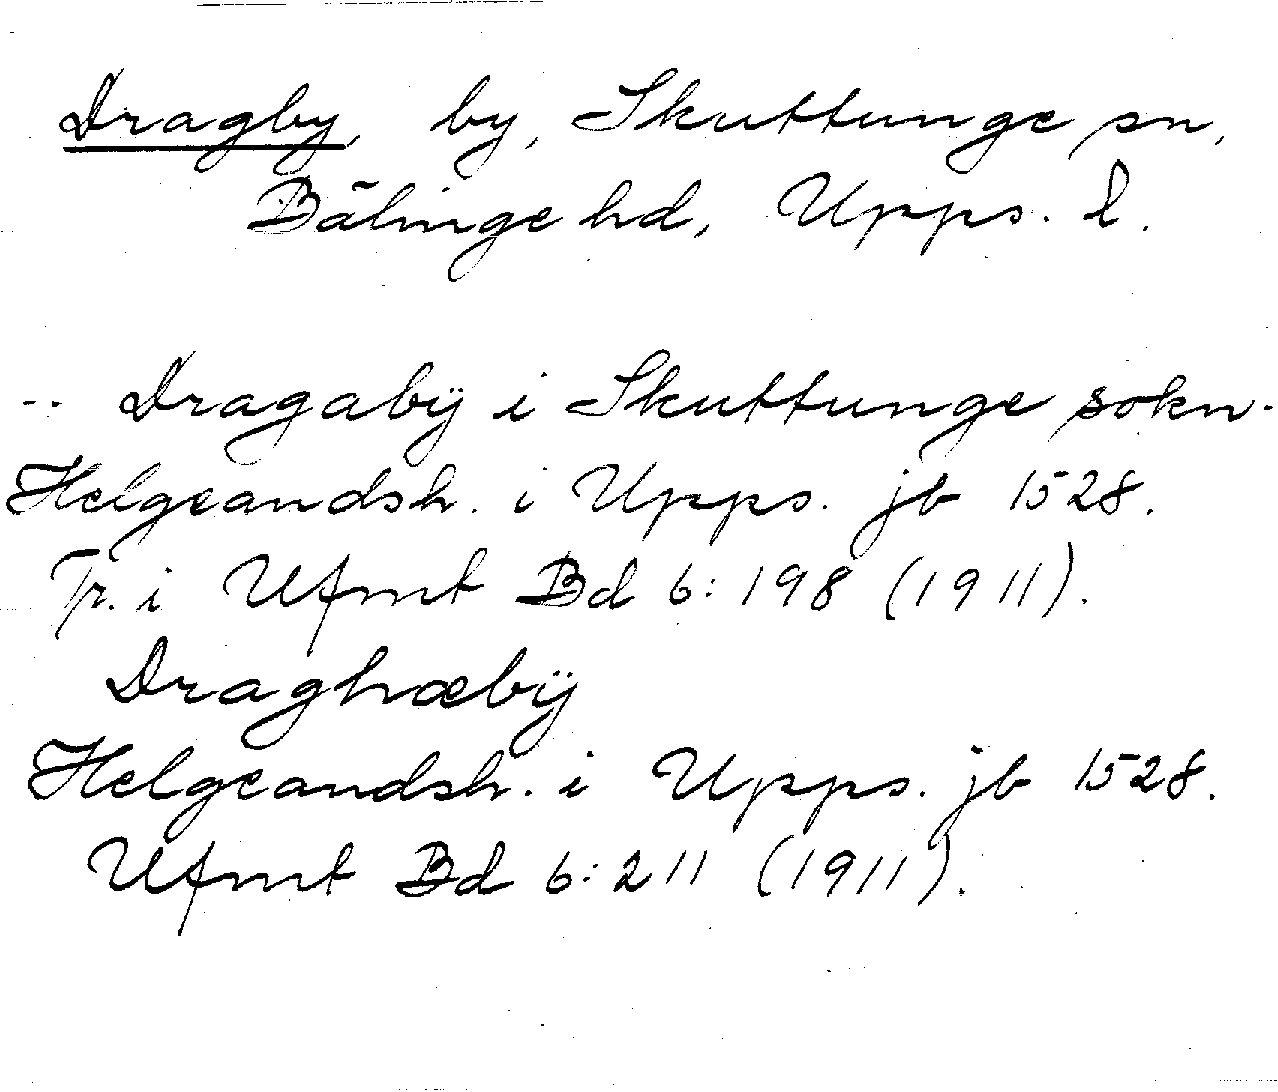 Dragby, by, Skuttunge sn,
Bälinge hd, Upps. l.
-- Dragabÿ i Skuttunge sokn.
Helgeandsh. i Upps. jb 1528.
Tr. i Ufmt Bd 6:198 (1911).
Draghæbÿ
Helgeandsh. i Upps. jb 1528.
Ufmt Bd 6:211 (1911).